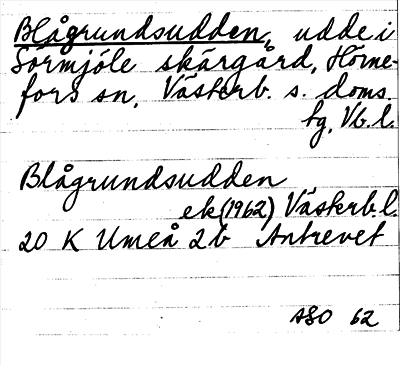 Blågrundsudden, udde i
Sörmjöle skärgård, Hörne-
fors sn, Västerb. s. doms.
tg, Vb. l.
Blågrundsudden
ek (1962) Västerb. l.
20 K Umeå 2b Antrevet
ASO 62